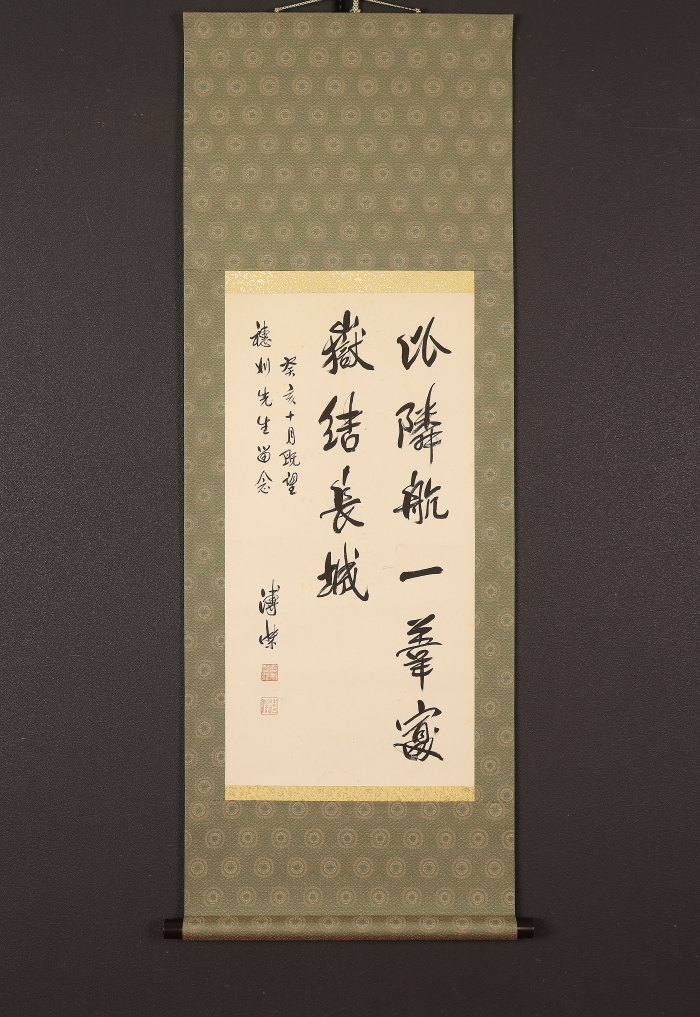 比隣航一葦富
嶽結長城
癸亥十月既望
穂州先生留念
溥傑